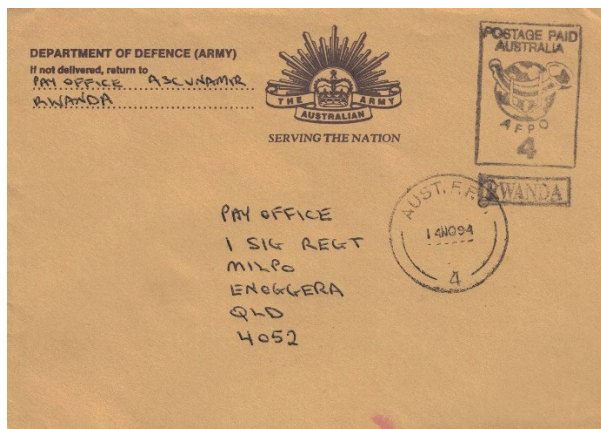 DEPARTMENT OF DEFENCE (ARMY)
If not delivered, return to
PAY OFFICE ASCUNAMIR
RWANDA
THE AUSTRALIAN ARMY
SERVING THE NATION
POSTAGE PAID
AUSTRALIA
AFPO
4
RWANDA
AUST. F.P.O.
14NO94
4
PAY OFFICE
1 SIG REGT
MILPO
ENOGGERA
QLD
4052